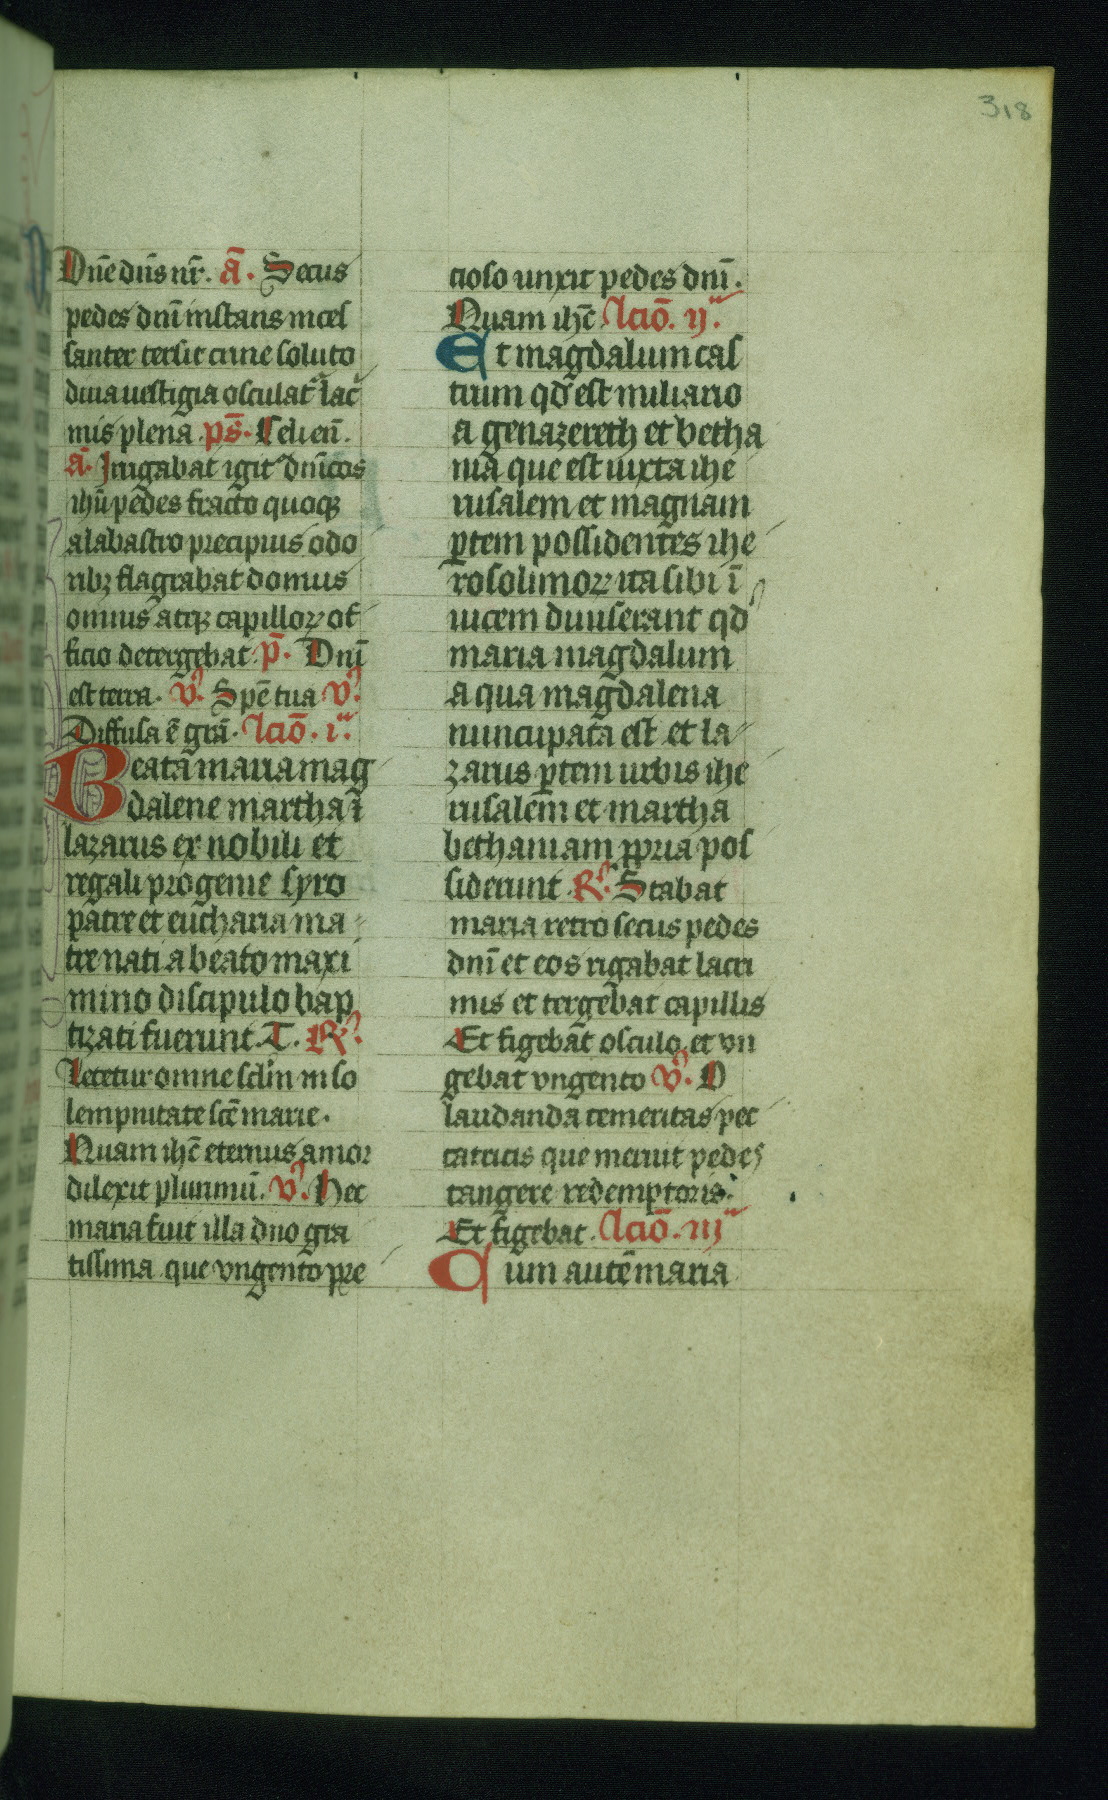 318
Dn̄e dn̄s nr̄. a̅. Secus
pedes dn̄i instans inces
santer tersit crine soluto
diua uestigia osculat᷑ lac᷑
mis plena. ps̄. Celi en̄.
a̅. Irrigabat igit᷑ dn̄icos
ihū pedes fracto quoqꝫ
alabastro precipuis odo
ribꝫ flagrabat domus
omnis atqꝫ capilloꝝ of
ficio detergebat. p̄. Dn̄i
est terra. v᷑. Spē tua v᷑.
Diffusa ē grā. lcīo. iᵃ.
Beata maria mag
dalene martha ⁊
lazarus ex nobili et
regali progenie syro
patre et eucharia ma
tre nati a beato maxi
mino discipulo bap
tizati fuerunt. T. R᷑
Letetur omne sclm̄ in so
lempnitate scē marie.
Quam ihc̄ eternus amor
dilexit plurimū. v᷑. Hec
maria fuit illa dn̄o gra
tissima que vngento pre
cioso unxit pedes dn̄i.
Quam ihc̄ lcīo. ijᵃ.
Et magdalum cas
trum qd̄ est miliario
a genazereth et betha
nia que est iuxta ihe
rusalem et magnam
ꝑtem possidentes ihe
rosolimoꝝ ita sibi ī
uicem diuiserant qd̄
maria magdalum
a qua magdalena
nuncupata est et la
zarus ꝑtem urbis ihe
rusalem et martha
bethaniam ꝓpria pos
siderunt. R᷑. Stabat
maria retro secus pedes
dn̄i et eos rigabat lacri
mis et tergebat capillis
Et figebāt osculo et vn
gebat vngento v᷑. O
laudanda temeritas pec
catricis que meruit pedes
tangere redemptoris.
Et figebat. lcīo. iijᵃ
Cum autē maria